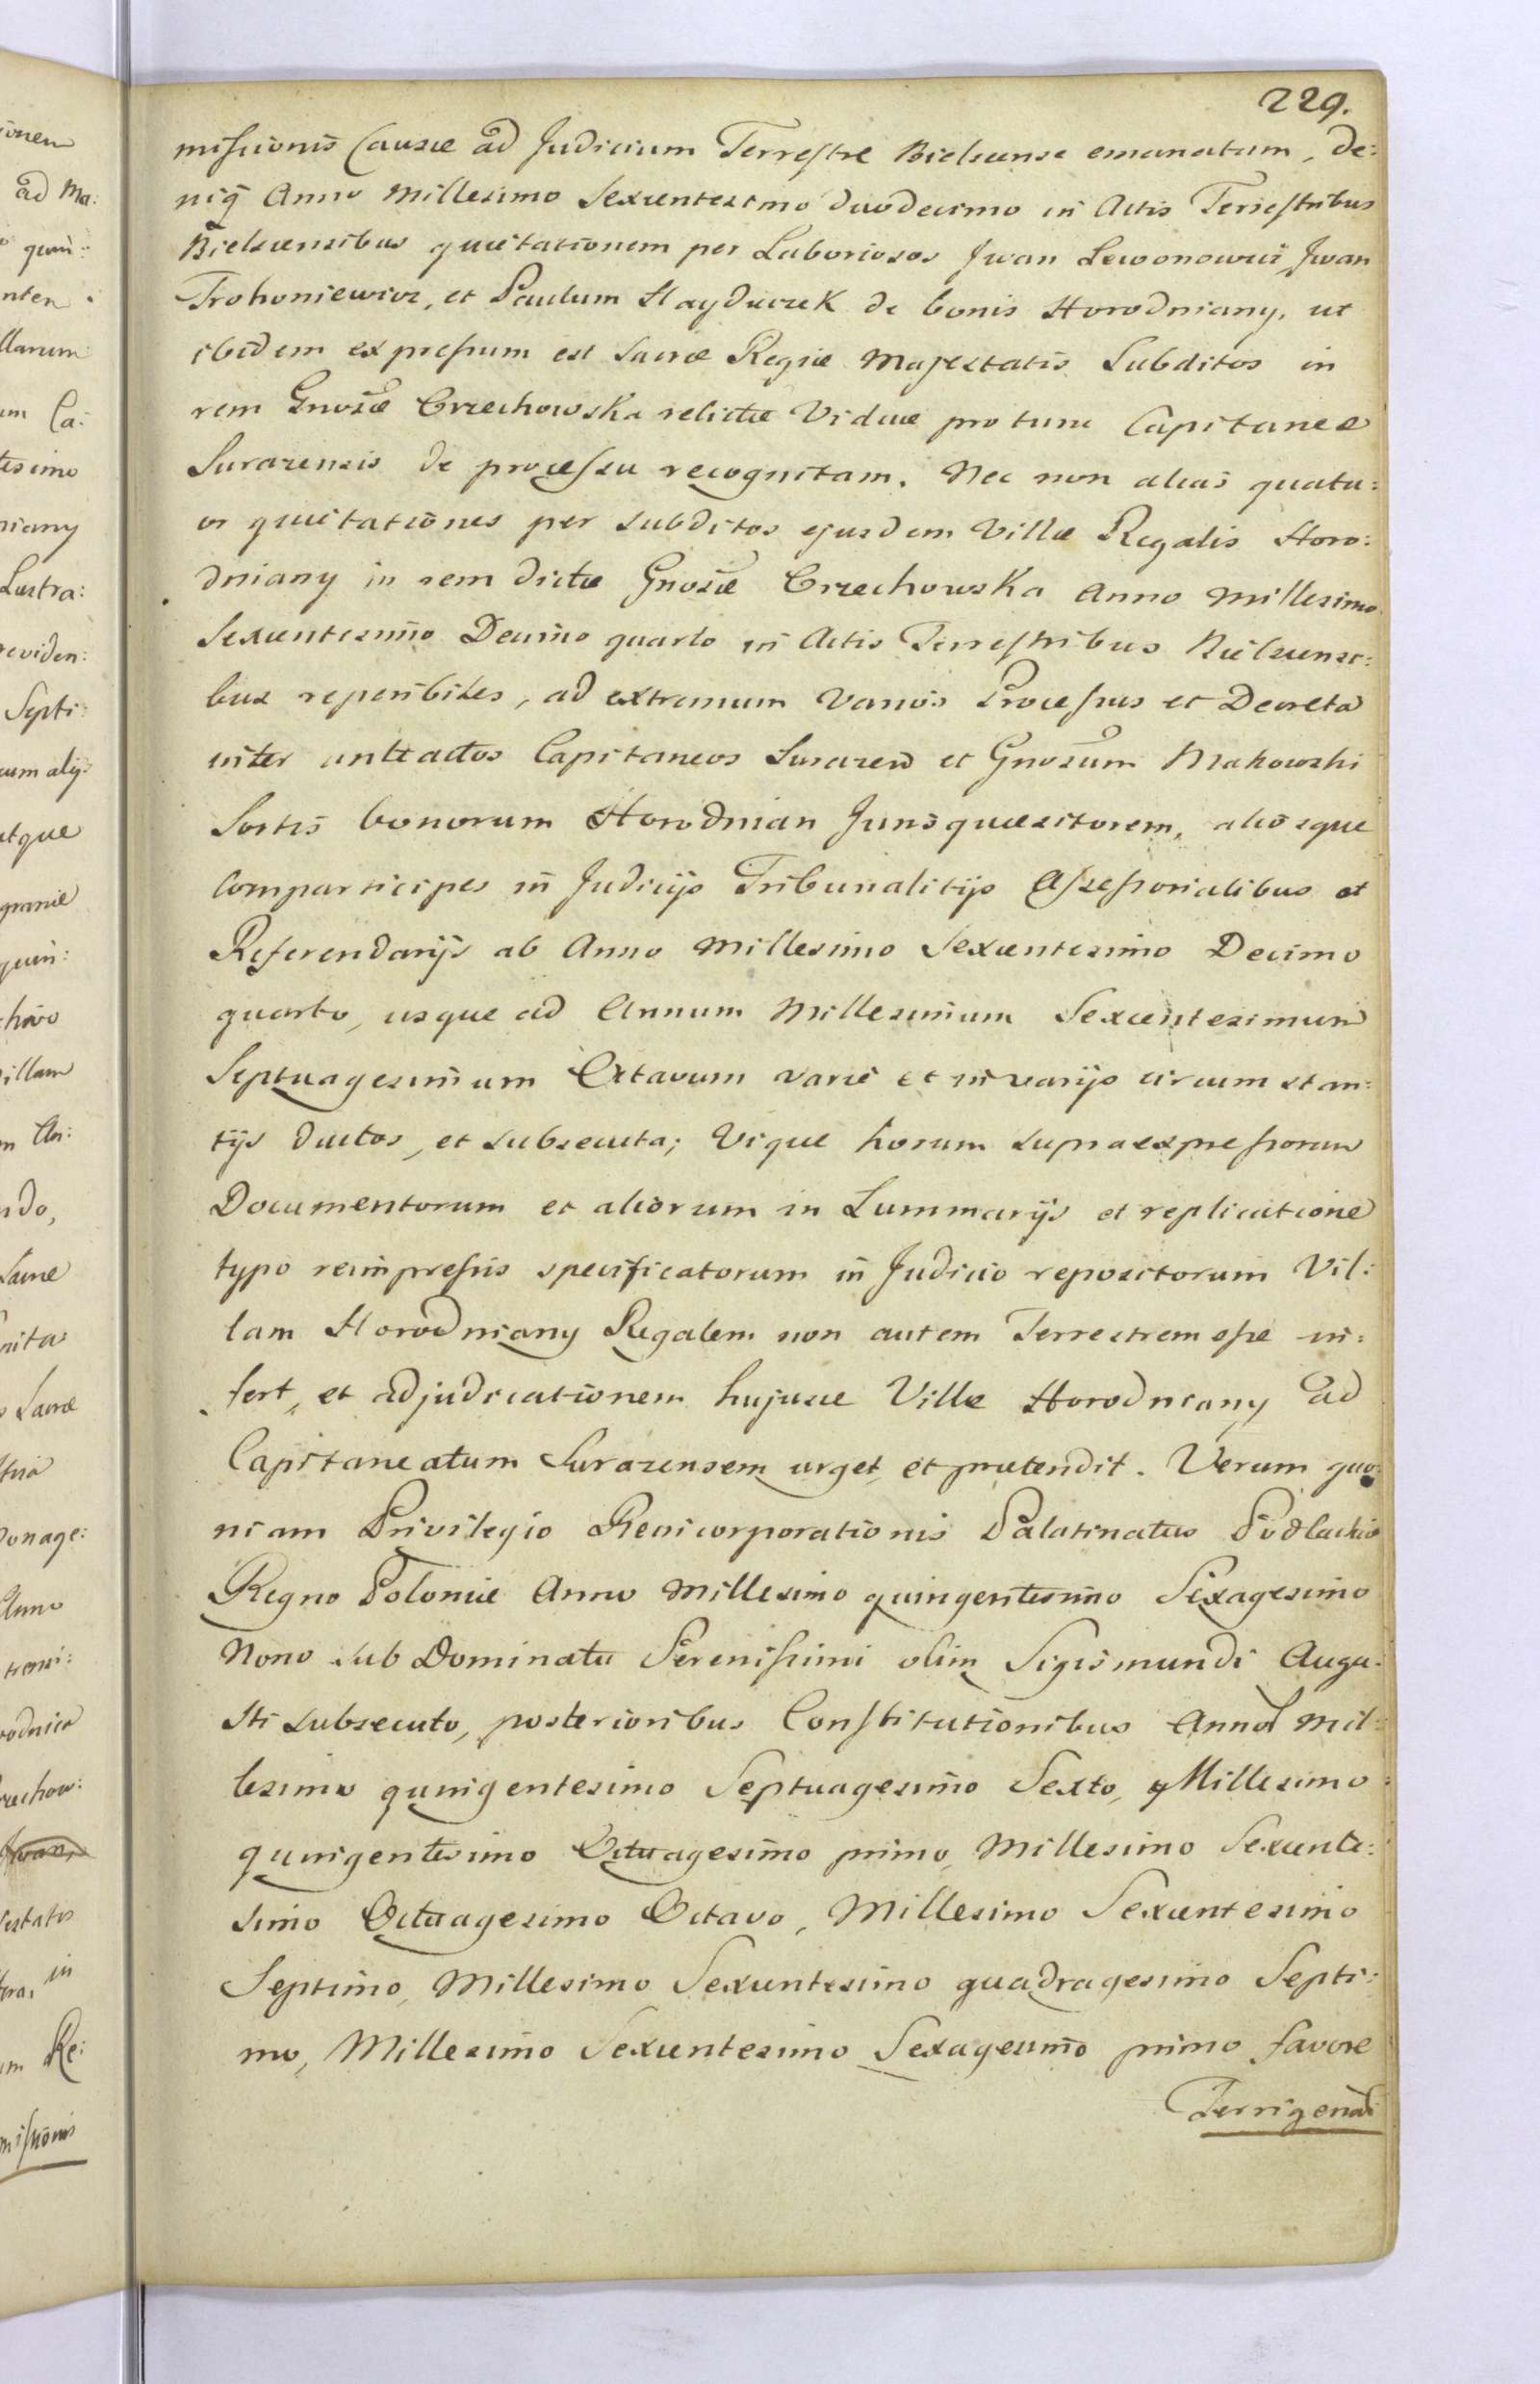 229.
missionis Causæ ad Judicium Terrestre Bielscense emanatum, de:
niq̃ Anno Millesimo Sexcentesimo duodecimo in Actis Terrestribus
Bielscensibus quietationem per Laboriosos Jwan Lewonowicz Jwan
Trohoniewicz, et Paulum Hayduczek de bonis Horodniany, ut
ibidem expressum est Sacræ Regiæ Majestatis Subditos in
rem Gnosæ Orzechowska relictæ Viduæ pro tunc Capitaneæ
Surazensis de processu recognitam. Nec non alias quatu:
or quietationes per subditos ejusdem Villæ Regalis Horo:
dniany in rem dictæ Gnosæ Orzechowska Anno Millesimo
Sexcentesimo Decimo quarto in Actis Terrestribus Bielscensi:
bus reperibiles, ad extremum varios Processus et Decreta
inter anteactos Capitaneos Surazen et Gnosum Makowski
Sortis bonorum Horodnian Jurisquæsitorem, aliosque
comparticipes in Judicijs Tribunalitijs Assessorialibus et
Referendarijs ab Anno Millesimo Sexcentesimo Decimo
quarto, usque ad Annum Millesimum Sexcentesimum
Septuagesimum Octavum varie et in varijs circumstan:
tijs ductos, et subsecuta; Vique horum supraexpressorum
Documentorum et aliorum in Summarijs et replicatione
typo reimpressis specificatorum in Judicio repositorum Vil:
lam Horodniany Regalem non autem Terrestrem esse in:
fert, et adjudicationem hujusce Villæ Horodniany ad
Capitaneatum Surazensem urget et prætendit. Verum quo:
niam Privilegio Reincorporationis Palatinatus Podlachiæ
Regno Poloniæ Anno Millesimo quingentesimo Sexagesimo
Nono sub Dominatu Serenissimi olim Sigismundi Augu:
sti subsecuto, posterioribus Constitutionibus Annor Mil:
lesimo quingentesimo Septuagesimo Sexto, Millesimo
quingentesimo Octuagesimo primo, Millesimo Sexcente:
simo Octuagesimo Octavo, Millesimo Sexcentesimo
Septimo, Millesimo Sexcentesimo quadragesimo Septi:
mo, Millesimo Sexcentesimo Sexagesimo primo favore
Terrigenar